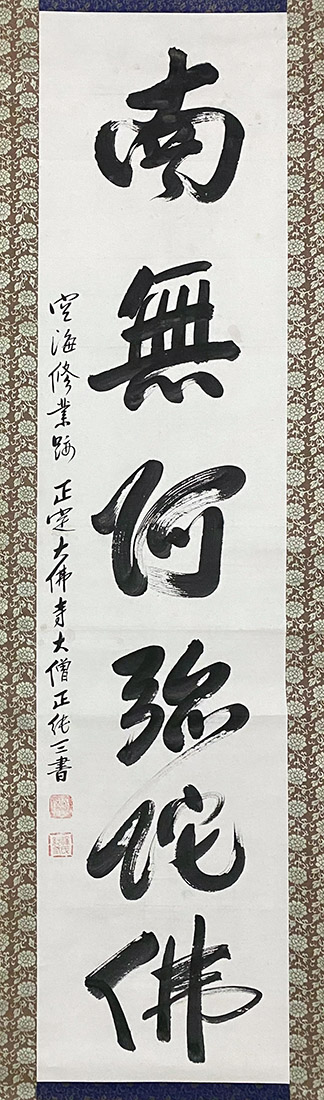 南無阿弥陀佛
空海修業跡 正定大佛寺大僧正純三書